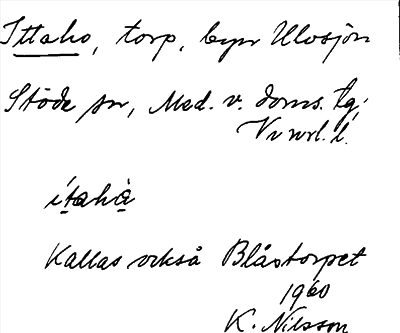 Ittaho, torp, byn Ulvsjön
Stöde sn, Med. v. doms. tg;
Vnorl. l.
ítahà
Kallas också Blåstorpet
1960
K. Nilsson